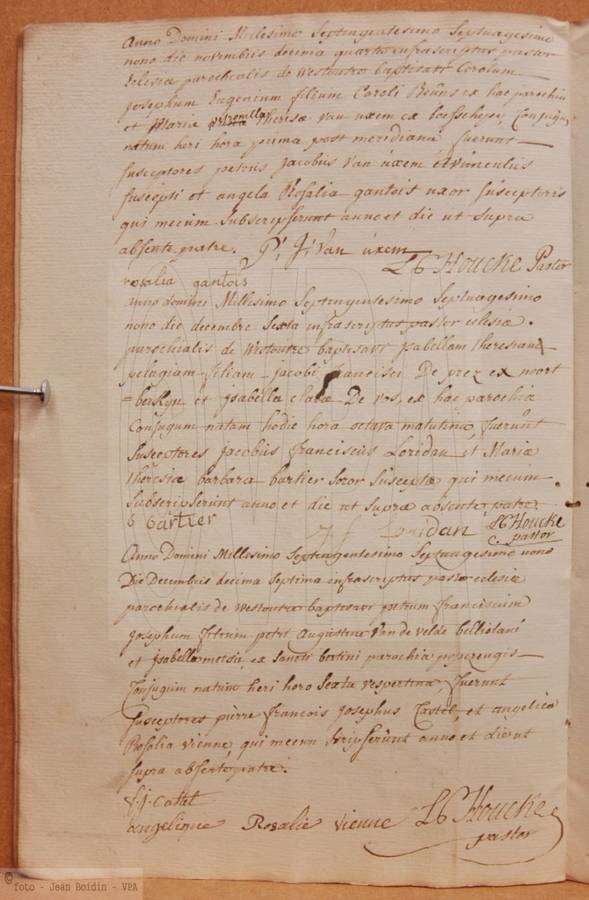 Anno Domini Milesimo Septengentesimo Septuagesimo
nono die novembris decima quarta infrascriptus pastor
Eclesiæ parochialis de Westoutre baptisavi Carolum
Josephum Eugenium filium Caroli ex hac parochia
et Maria petronilla Theresæ Van uxem ex boesschepe, Conjugum
natum heri hora prima post meridiana fuerunt
susceptores petrus Jacobus Van uxem avunculus
suscepti et angela Rosalia gantois uxor susceptoris
qui mecum subscripserunt anno et die ut supra
absente patre. P. J. Van uxem
L C Houcke Pastor
rosalia gantois
anno domini Millesimo Septengentesimo Septuagesimo
nono die decembre Sexta infrascriptus pastor eclesiæ
parochialis de Westoutre baptisavi Isabellam theresiam
pelagiam filiam jacobi francisci De prez ex noort
=berkyn et isabella clara De vos, ex hac parochia
Conjugum natam hodie hora octava matutina, fuerunt
Susceptores jacobus franciscus Loridan et Maria
theresia barbara bartier Soror Susceptæ qui mecum
Subscripserunt anno et die ut supra absente patre.
b bartier Loridan L C Houcke
pastor
Anno Domini Millesimo Septengentesimo Septuagesimo nono
Die Decembris decima septima infrascriptus pastor eclesiæ
parochialis de Westoutre baptisavi petrum franciscum
Josephum filium petri Augustini Van de velde belliolani
et isabella metsu ex Sancti bertini parochia poperengis
Conjugum natum heri hora Sexta vespertina, fuerunt
Susceptores pierre francois Josephus Castel, et angelica
Rosalia vienne, qui mecum scripserunt anno et die ut
supra absente patre.
f. j. Castel
angelique Rosalie Vienne L C Houcke
pastor
© foto - Jean Boidin - VPA